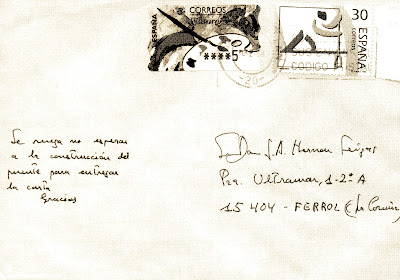 ESPAÑA
CORREOS
****5
30
ESPAÑA
CORREOS
CODIGO
20
Se ruega no esperar
a la construcción del
puente para entregar
la carta
Gracias
J.A. Hernan
Pza. Ultramar, 1-2º A
15404 - FERROL (La Coruña)